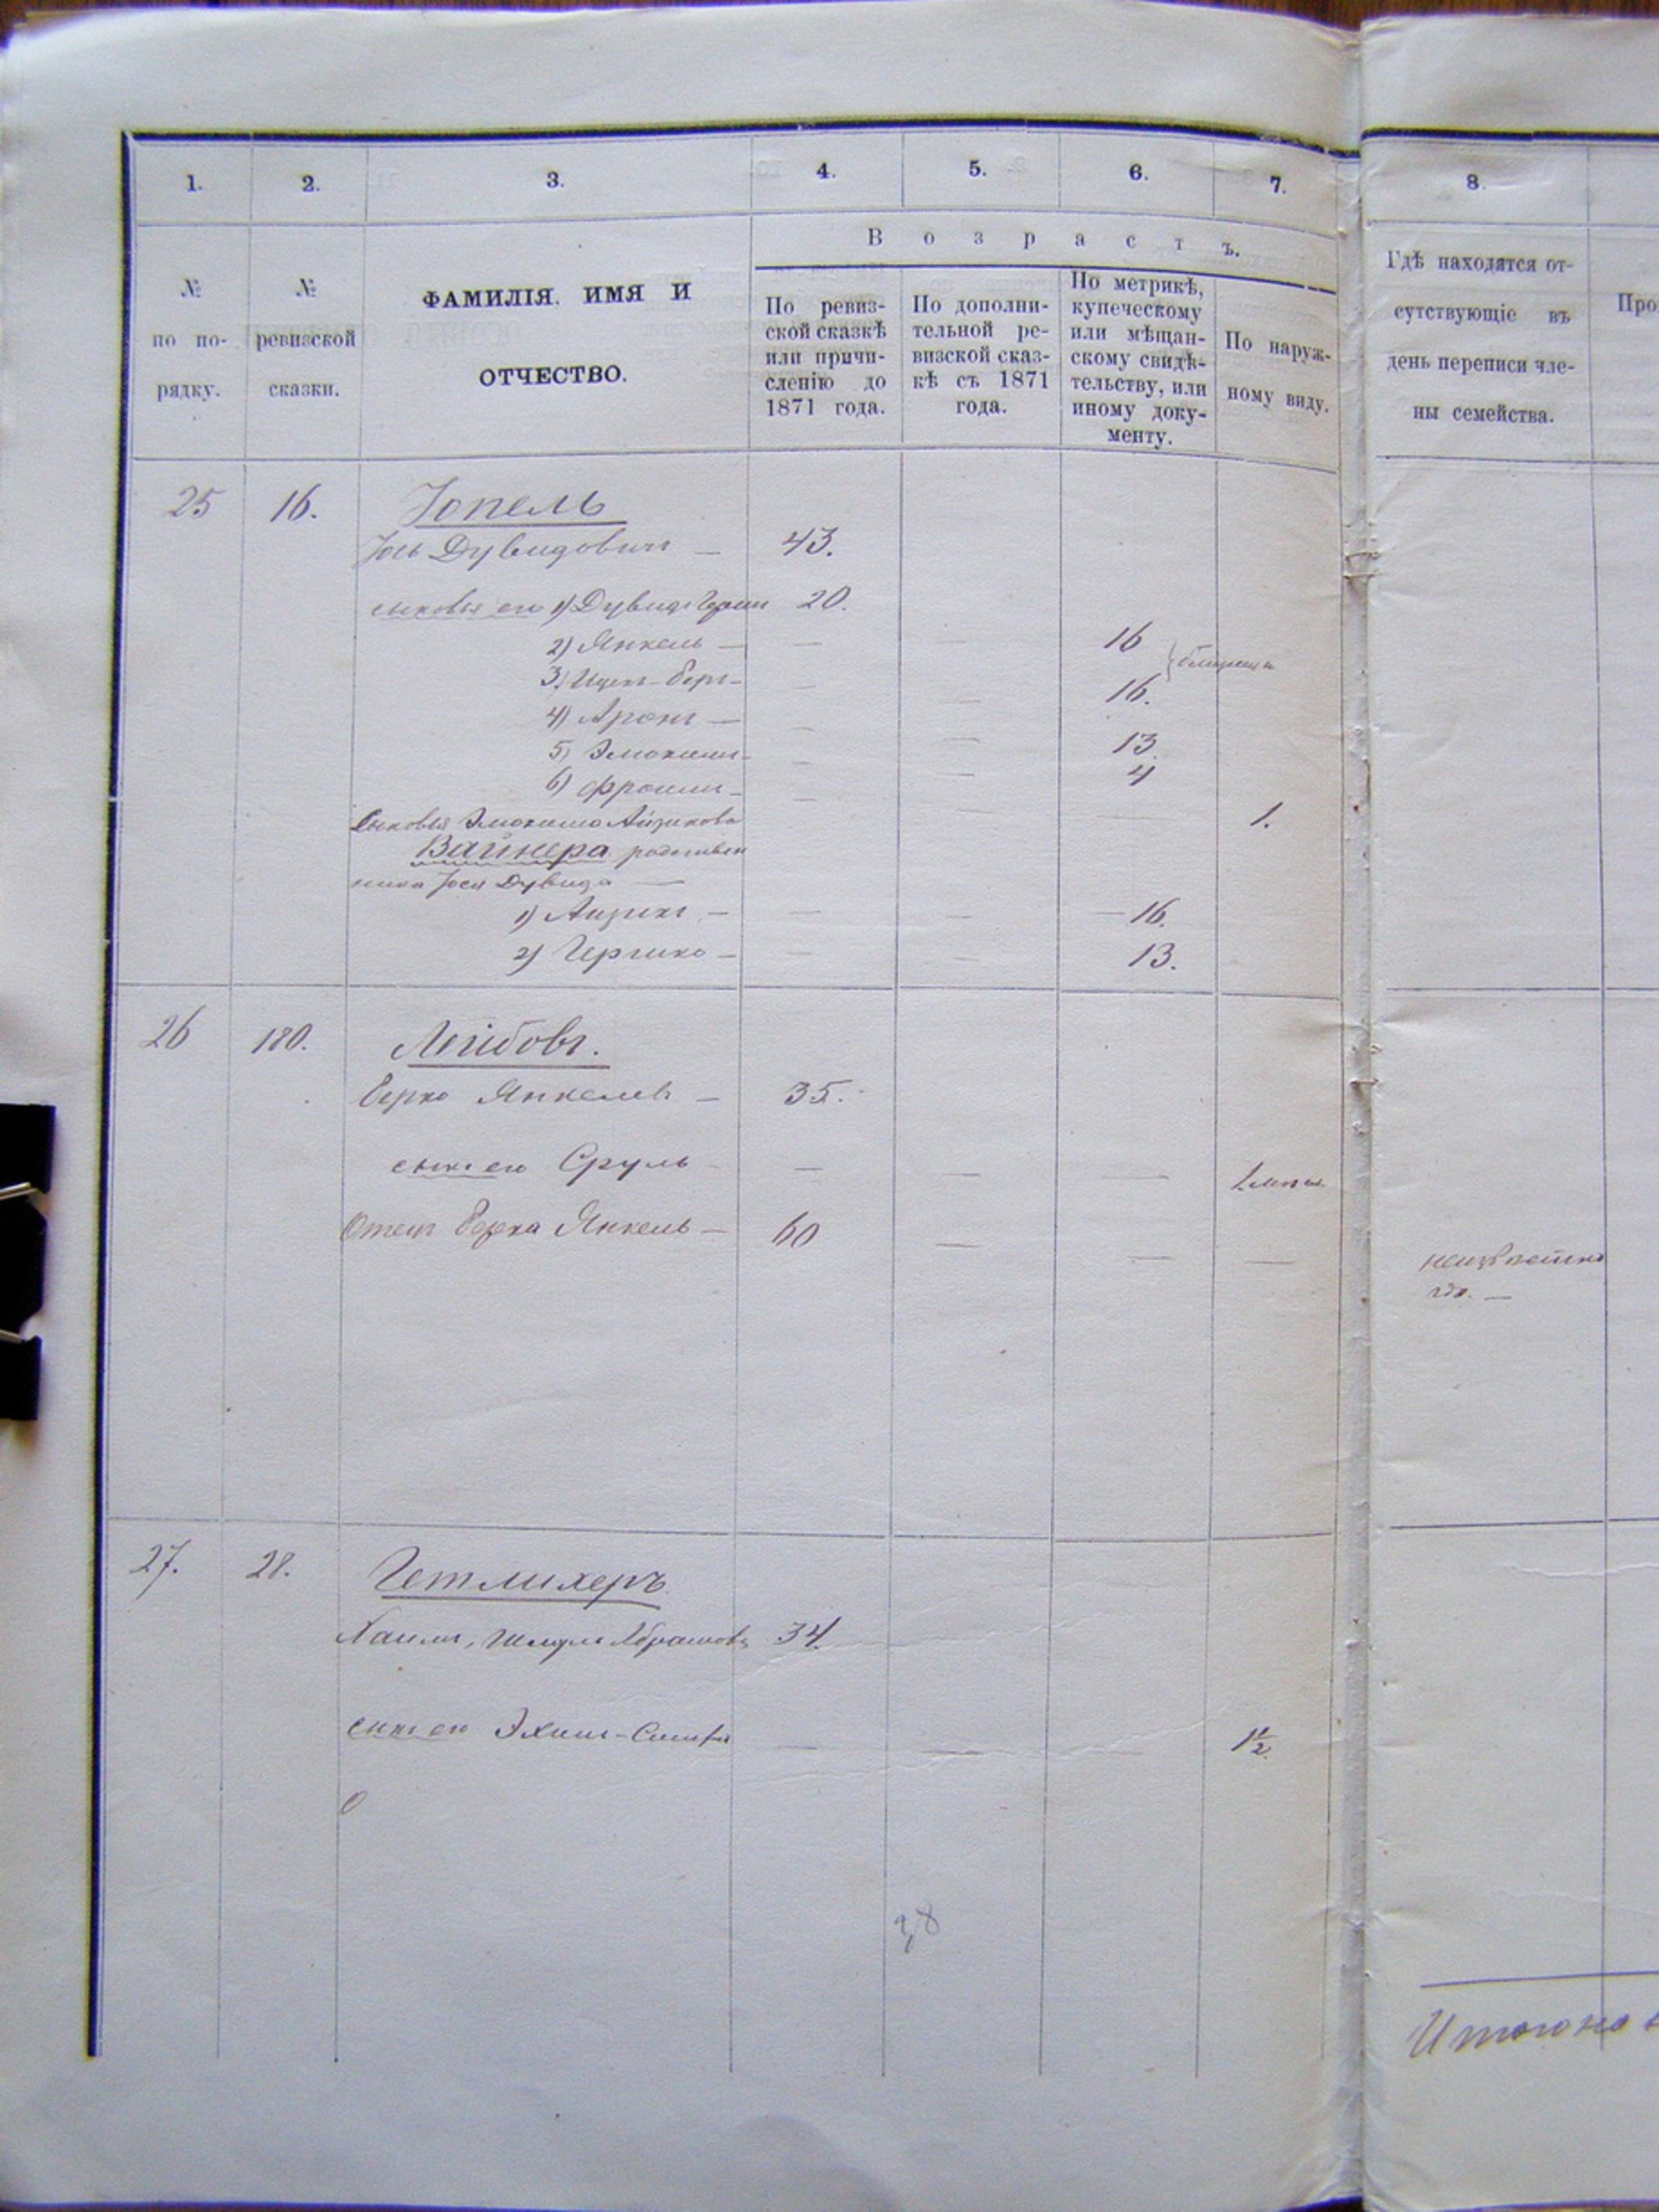 1. 2. 3. 4. 5. 6. 7. 8.
В о з р а с т ъ.
№ по по-рядку.
№ ревизской сказки.
ФАМИЛІЯ, ИМЯ И
ОТЧЕСТВО.
По ревиз-
ской сказкѣ
или причи-
сленію до
1871 года.
По дополни-
тельной ре-
визской сказ-
кѣ съ 1871
года.
По метрикѣ,
купеческому
или мѣщан-
скому свидѣ-
тельству, или
иному доку-
менту.
По наруж-
ному виду.
Гдѣ находятся от-
сутствующіе въ
день переписи чле-
ны семейства.
Про
25 16. Іопель
Іось Дувидовичъ — 43.
сыновья его 1) Дувидъ 20.
2) Янкель — — — 16
3) Ицекъ-Беръ — — — 16. близнецы
4) Аронъ — — — 13
5) Элюкимъ — — — 4
6) Фроимъ — — — — 1.
Сыновья Элюкима Айзикова
Вайнера родствен
ника Іося Дувида —
1) Айзикъ — — — 16.
2) Гершко — — — 13.
26 180. Лейбовъ.
Берко Янкелевъ — 35.
сынъ его Сруль — — — 1 мѣс.
Отецъ Берка Янкель — 60 — — — неизвѣстно
гдѣ. —
27. 28. Гетлихеръ
Хаимъ, Шмулъ Абрамовъ 34.
сынъ его Эхиш-Симха — — — 1 1/2.
О
28
Итого на